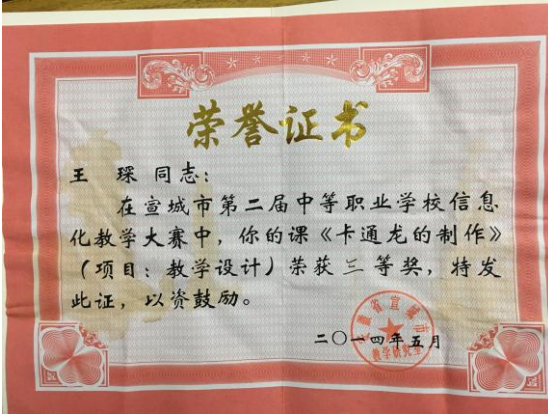 荣誉证书
王 琛 同志：
在宣城市第二届中等职业学校信息
化教学大赛中，你的课《卡通龙的制作》
（项目：教学设计）荣获三等奖，特发
此证，以资鼓励。
安徽省宣城市
二〇一四年五月